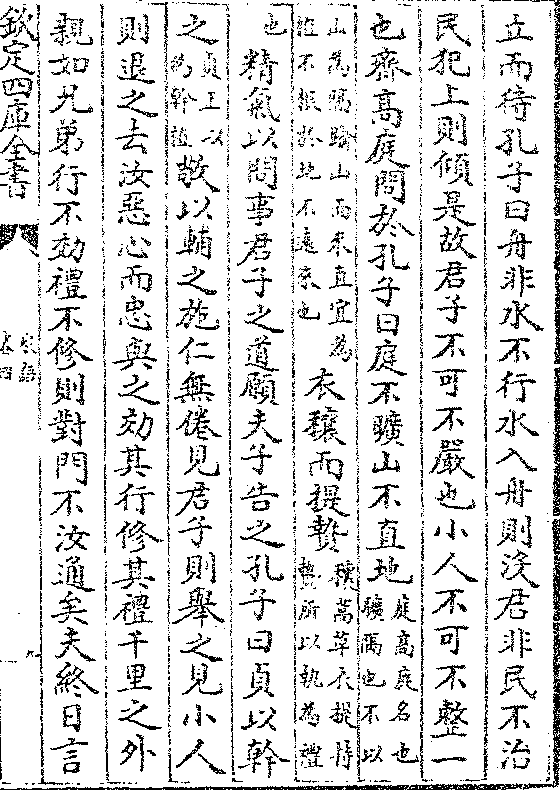 立而待孔子曰舟非水不行水入舟則沒君非民不治
民犯上則傾是故君子不可不嚴也小人不可不整一
也齊高庭問於孔子曰庭不曠山不直地庭高庭名也曠隔也不以
山為隔踰山而来直宜為植不根於地不遠来也衣穰而提贄穰蒿草衣提持贄所以執為禮
也精氣以問事君子之道願夫子告之孔子曰貞以幹
之貞正以為幹植敬以輔之施仁無倦見君子則舉之見小人
則退之去汝惡心而忠與之効其行修其禮千里之外
親如兄弟行不効禮不修則對門不汝通矣夫終日言
欽定四庫全書
家語
卷四
九